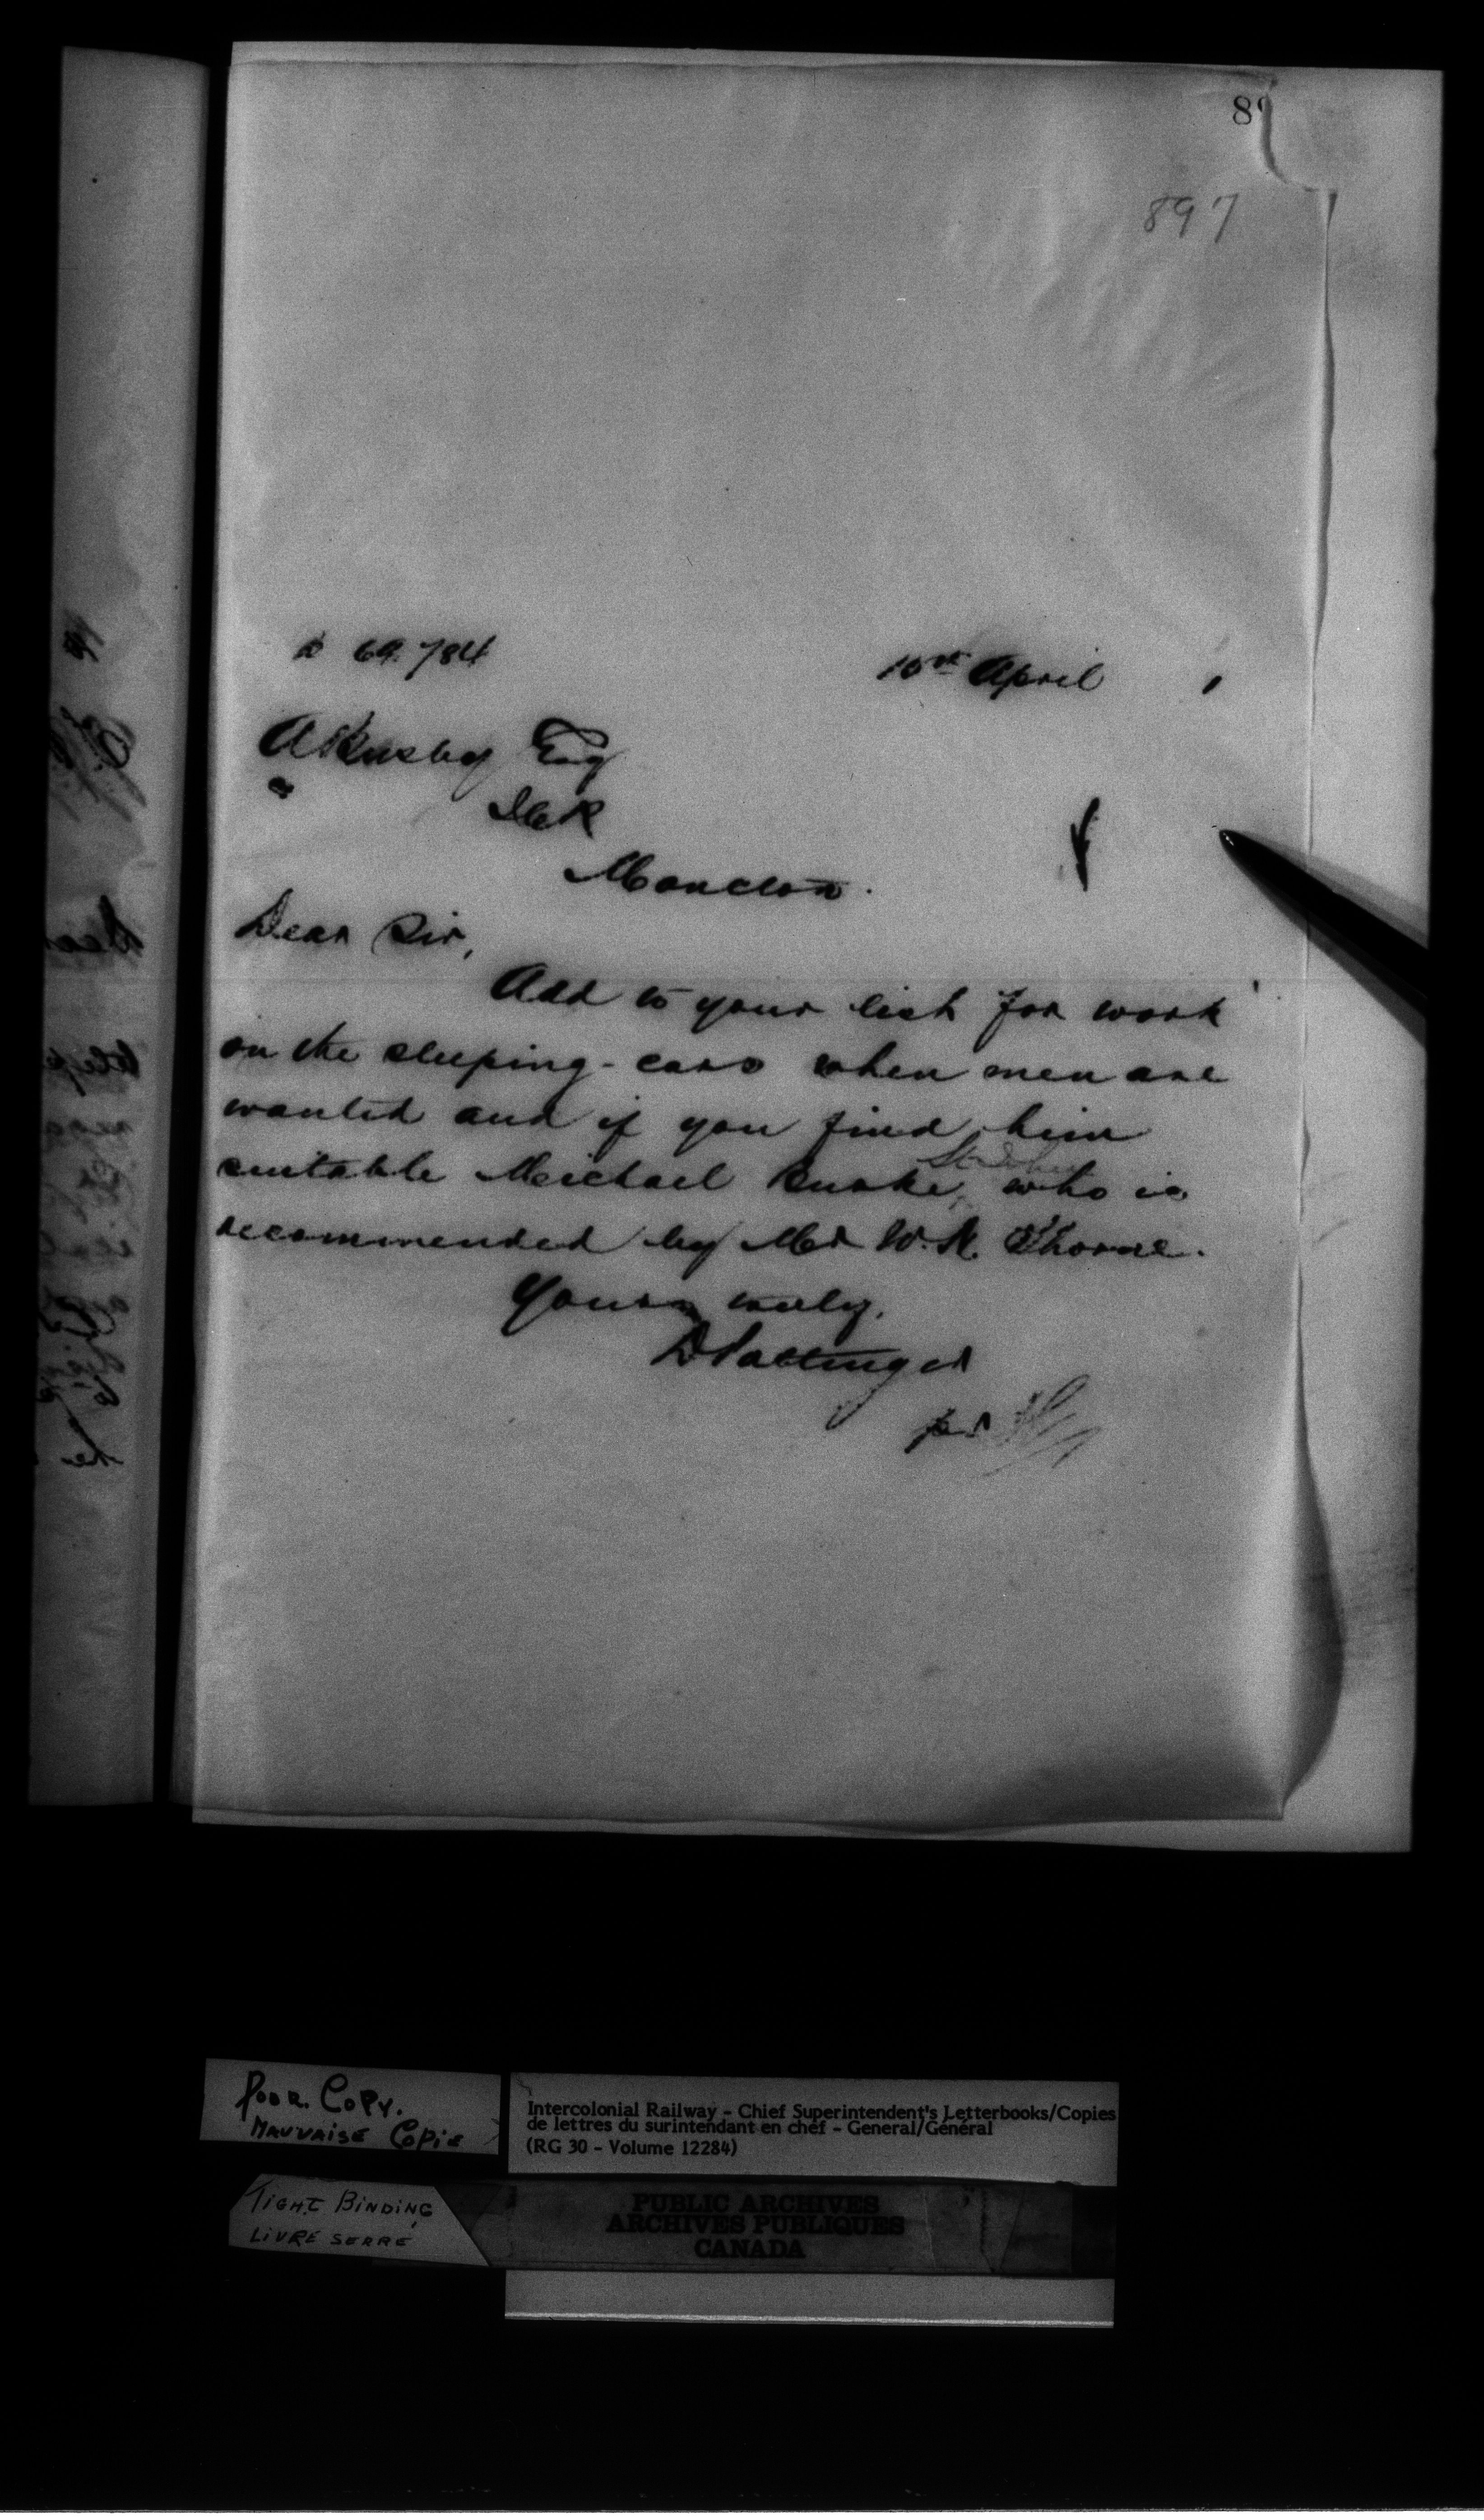 897
69.784
10th April
A Busby Esq
ICR
Moncton.
Dear Sir,
Add to your list for work
on the sleeping-cars when men are
wanted and if you find him
St John
suitable Michael Burke, who is
recommended by Mr W. H. Thorne.
Yours truly,
D Pottinger
per
Poor. Copy.
Mauvaise Copie
Intercolonial Railway - Chief Superintendent's Letterbooks/Copies
de lettres du surintendant en chef - General/Général
(RG 30 - Volume 12284)
Tight Binding
Livre serré
PUBLIC ARCHIVES
ARCHIVES PUBLIQUES
CANADA